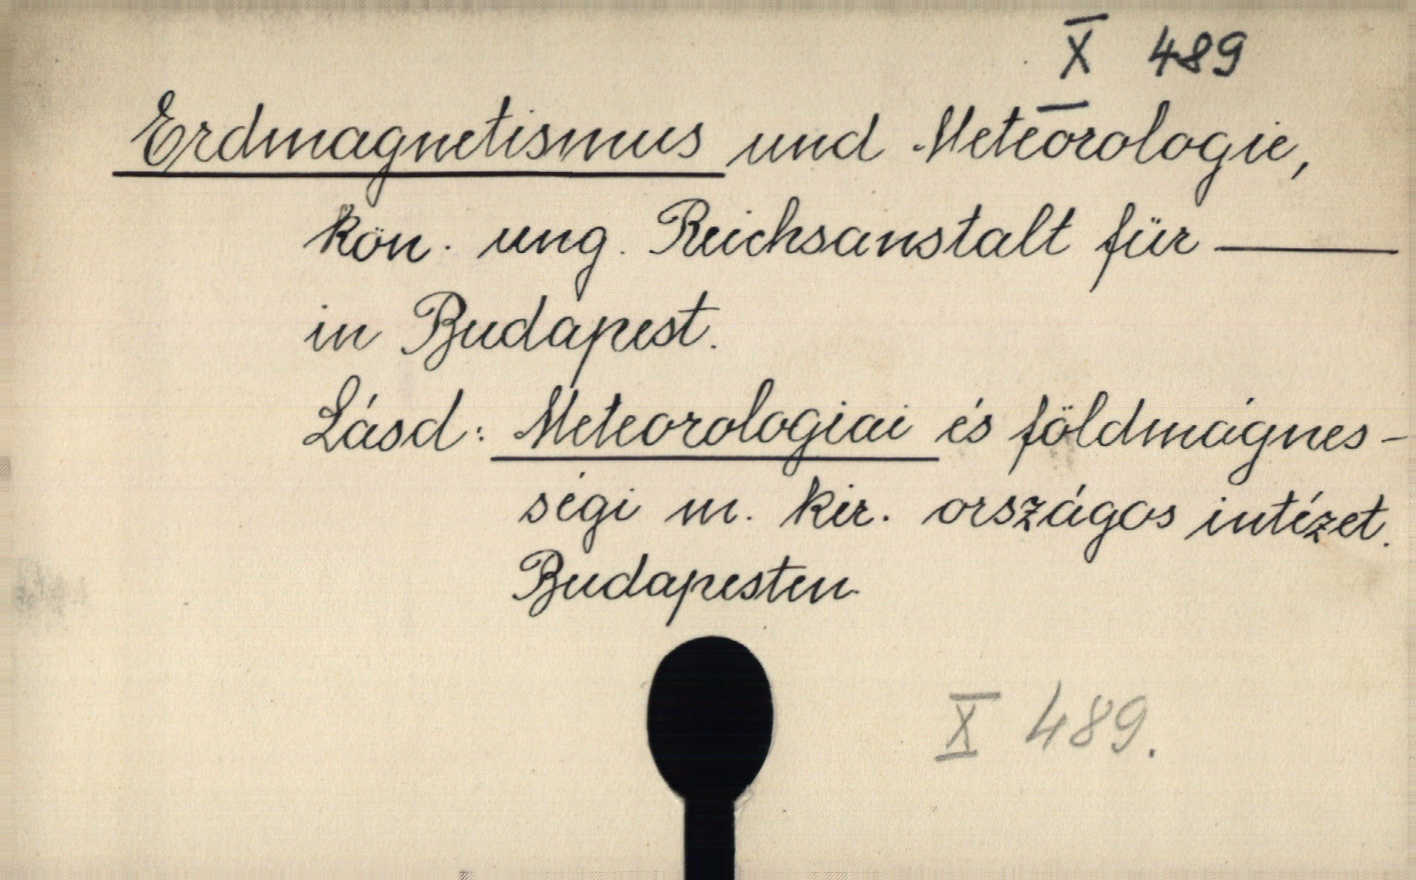 X 489
Erdmagnetismus und Meteorologie,
kön. ung. Reichsanstalt für ———
in Budapest.
Lásd: Meteorologiai és földmágnes-
ségi m. kir. országos intézet.
Budapesten
X 489.